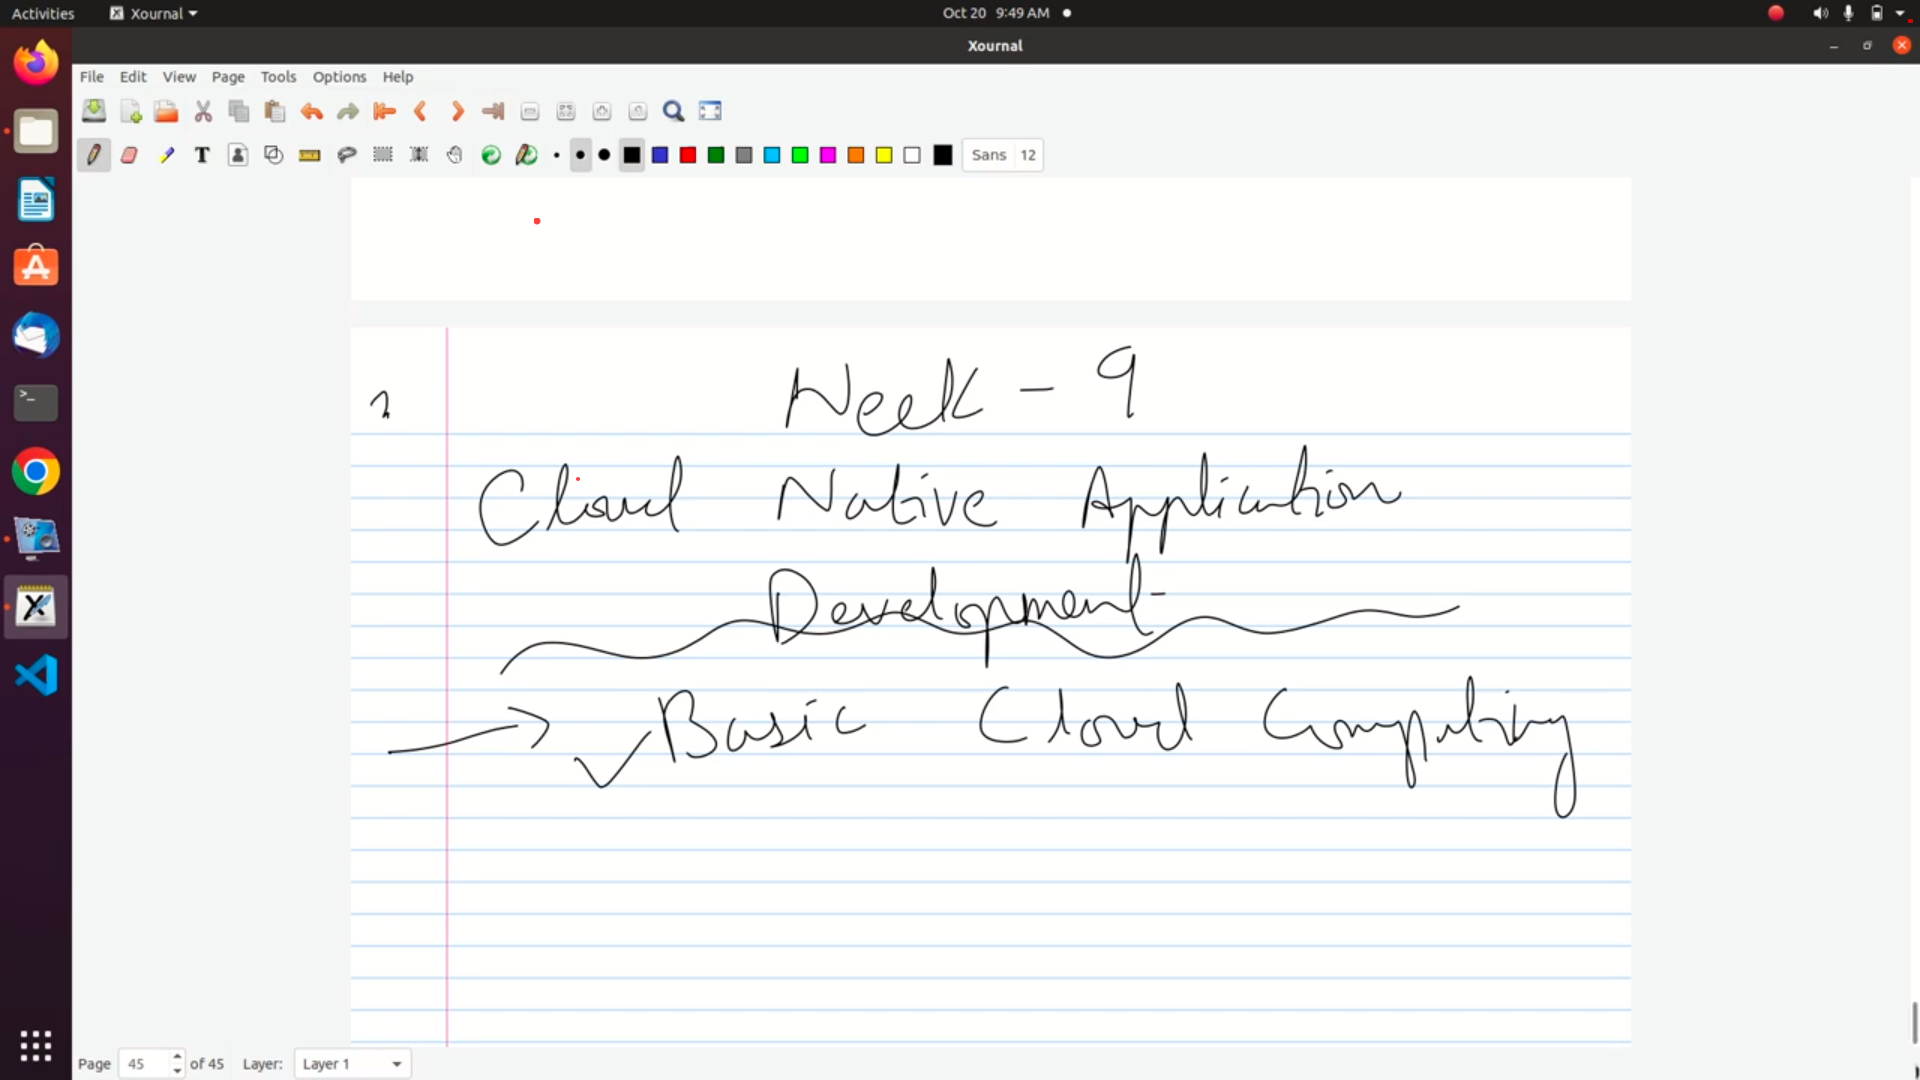 Activities Xournal Oct 20 9:49 AM
Xournal
File Edit View Page Tools Options Help
Sans 12
Week - 9
Cloud Native Application
Development
Basic Cloud Computing
Page 45 of 45 Layer: Layer 1